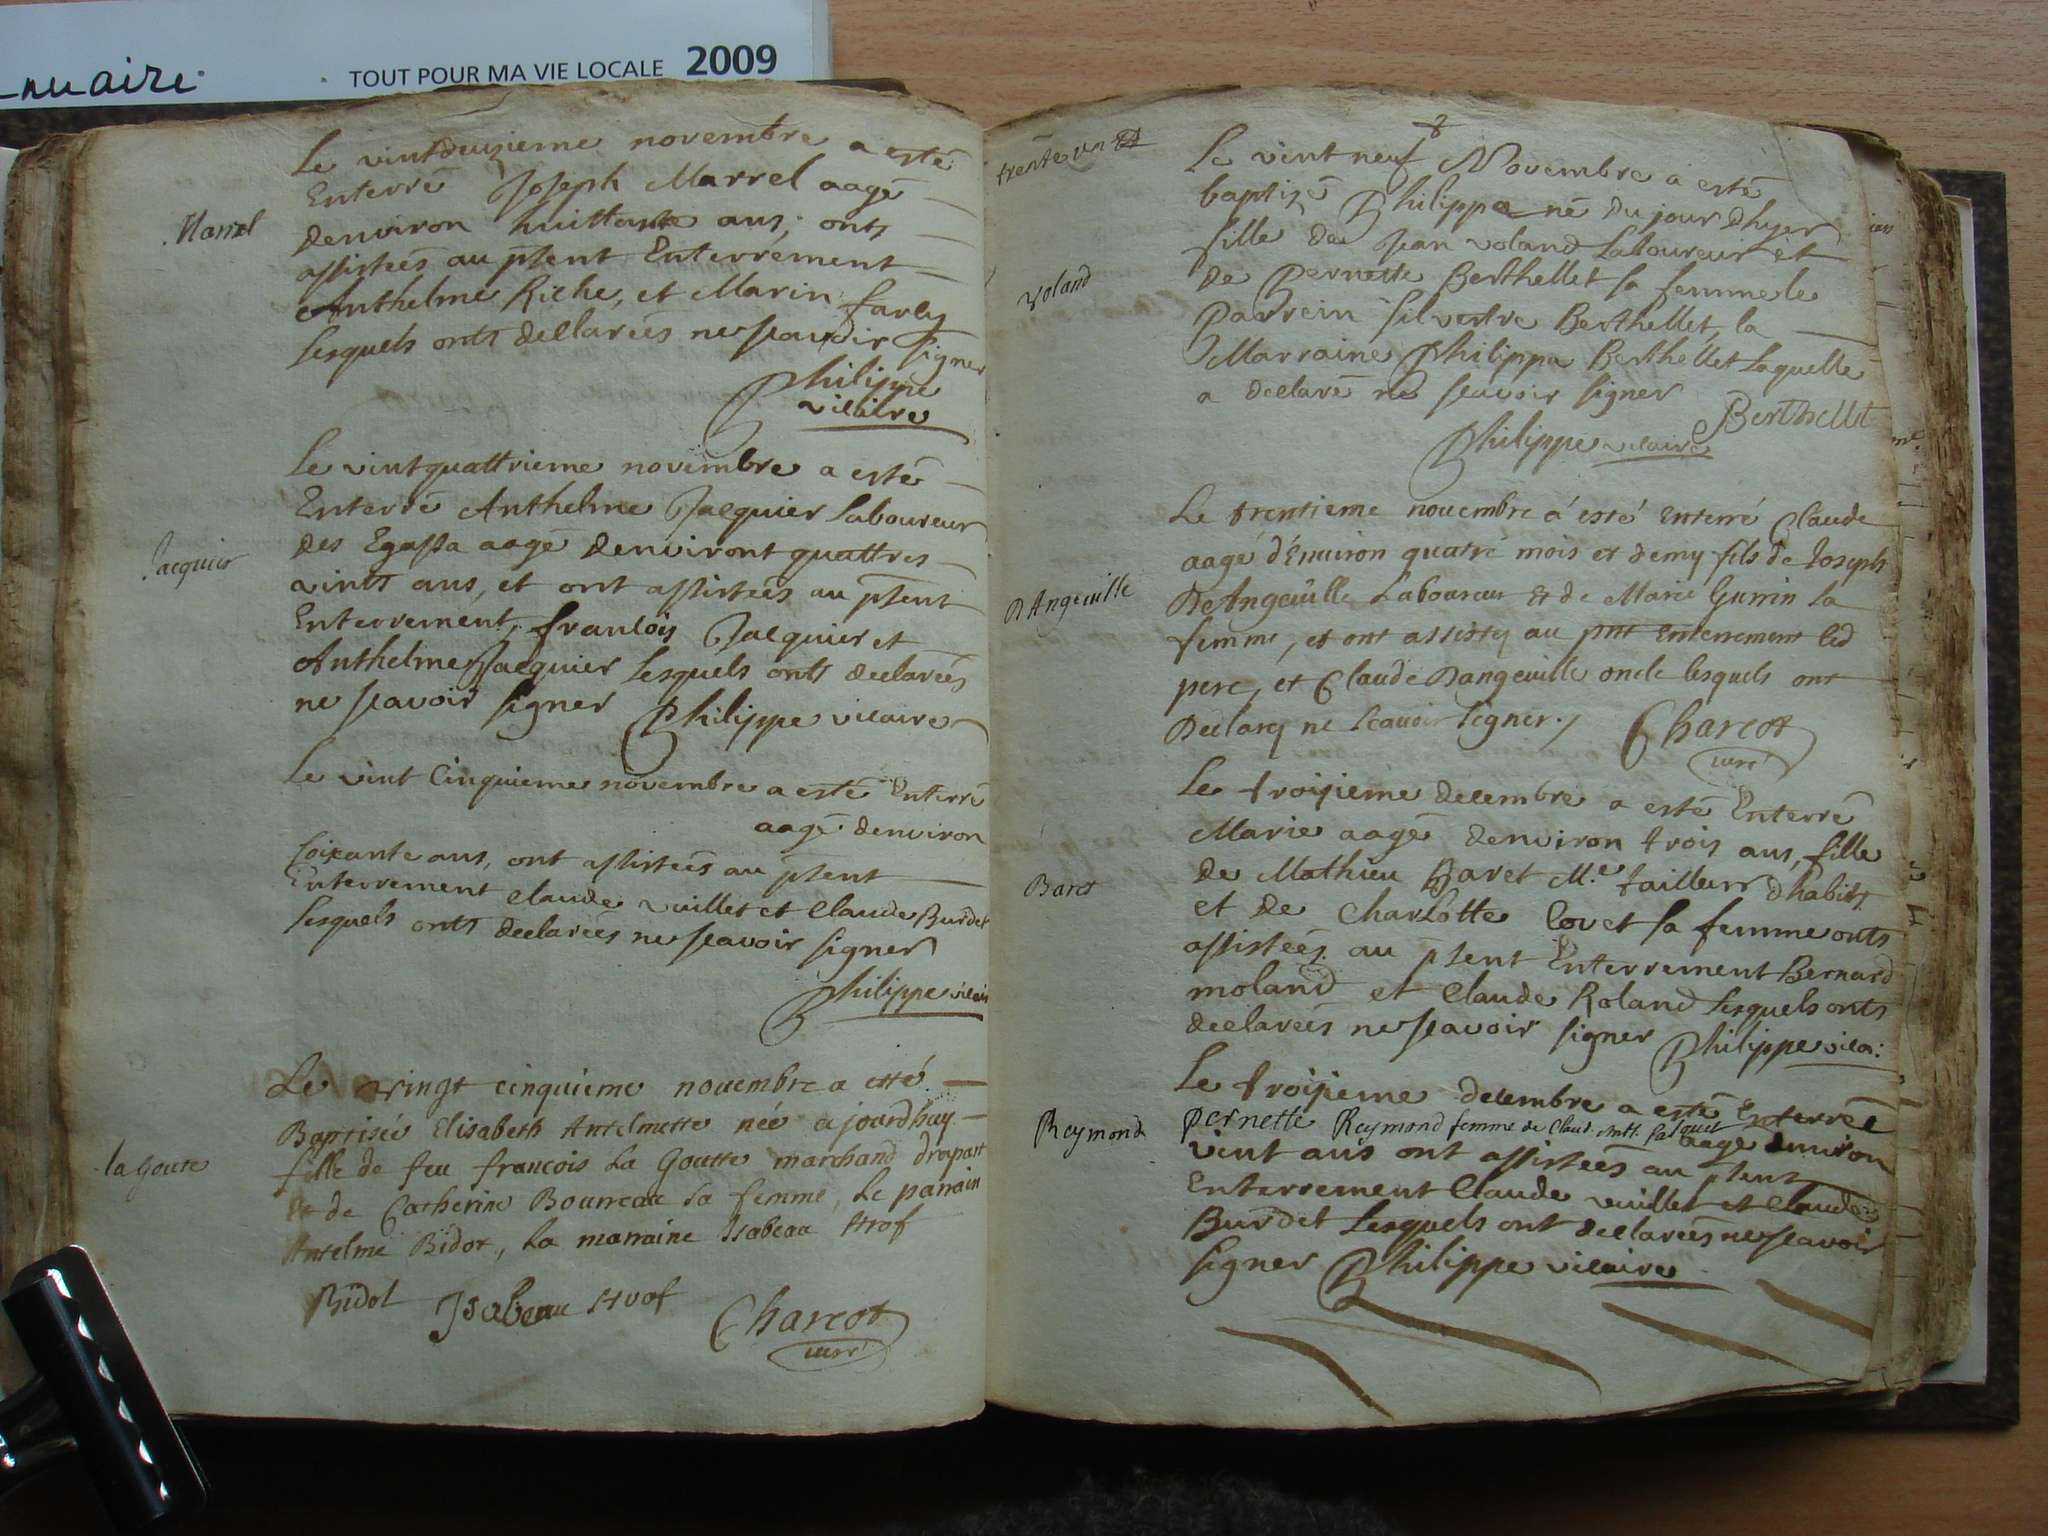 nuaire
TOUT POUR MA VIE LOCALE 2009
Le vintdeuzieme novembre a esté
Enterré Joseph Marrel aagé
denviron huittante ans, onts
assistées au pñent Enterrement
Anthelme Riche, et Marin farly
Lesquels onts declarées ne scavoir signer
Philippe
vicaire
Marrel
Le vintquattrieme novembre a esté
Enterré Anthelme Jacquier Laboureur
des Egassa aagé denviront quattres
vints ans, et ont assistées au pñent
Enterrement, francois Jacquier et
Anthelme Jacquier Lesquels onts declarées
ne scavoir signer Philippe vicaire
Jacquier
Le vint Cinquieme novembre a esté Enterré
aagé denviron
soixante ans, ont assistées au pñent
Enterrement Claude vuillet et Claude Burdet
Lesquels onts declarées ne scavoir signer
Philippe vicair
Le vingt cinquieme novembre a etté
Baptisée Elisabeth Antelmette née ajourdhuy
fille de feu francois La Goutte marchand drapant
Et de Catherine Bourreau sa femme, Le parrain
Antelme Bidot, La marraine Isabeau Strof
la Goute
Bidot Isabeau Strof Charcot
curé
trente un
Le vint neuf Novembre a esté
baptizé Philippa né du jour dhyer
fille de Jean voland Laboureur et
de Pernette Berthellet sa femme le
Parrein silvestre Berthellet, la
Marraine Philippa Berthellet Laquelle
a declaré ne scavoir signer
Berthellet
Philippe vicaire
voland
Le trentieme novembre a esté Enterré Claude
aagé d'Environ quatre mois et demy fils de Joseph
DeAngeville Laboureur et de Marie Guerrin sa
femme, et ont assistez au pnt Enterrement led
pere, et Claude Dangeville oncle lesquels ont
Declarez ne scavoir signer. Charcot
curé
DAngeville
Le troisieme decembre a esté Enterré
Marie aagé denviron trois ans, fille
de Mathieu Baret M.e tailleur dhabits
et de Charlotte Covet sa femme onts
assistées au pñent Enterrement Bernard
moland et Claude Roland Lesquels onts
declarées ne scavoir signer Philippe vica:
Baret
Le troisieme decembre a esté Enterrée
pernette Reymond femme de Claud. Anth.
aagé denviron
vint ans ont assistées au pñent
Enterrement Claude vuillet et Claude
Burdet Lesquels ont declarées ne scavoir
signer Philippe vicaire
Reymond